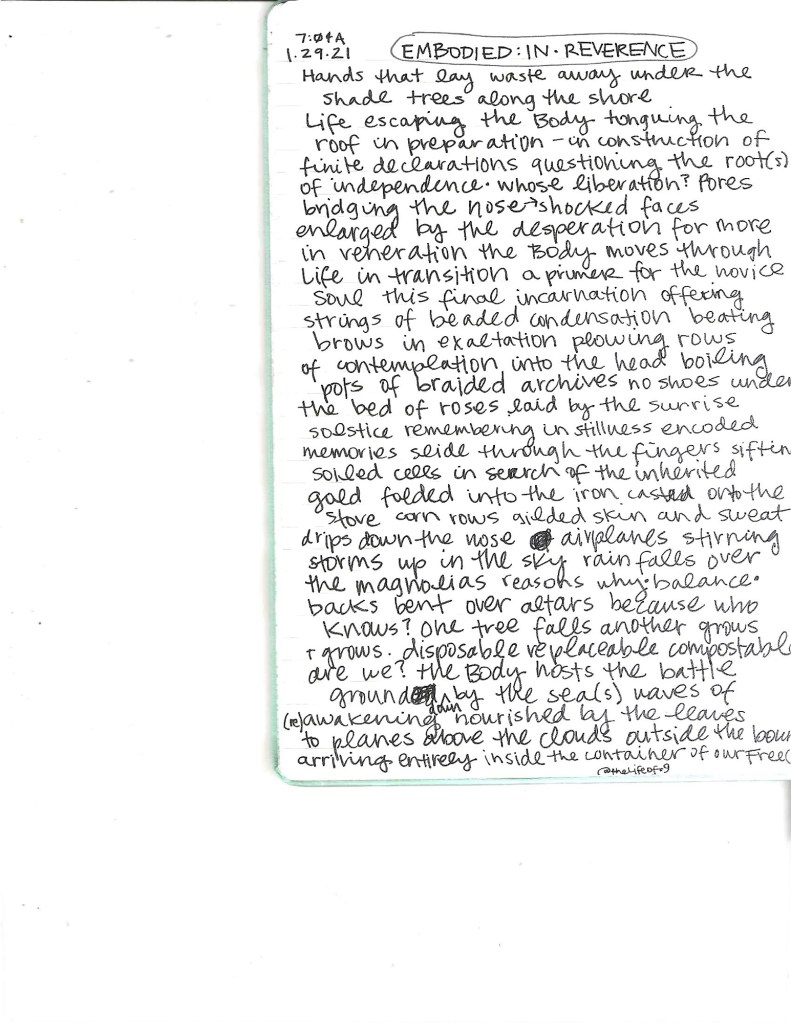 7:04A
1.29.21 EMBODIED: IN·REVERENCE
Hands that lay waste away under the
shade trees along the shore
Life escaping the Body tonguing the
roof in preparation - in construction of
finite declarations questioning the root(s)
of independence. whose liberation? Pores
bridging the nose→shocked faces
enlarged by the desperation for more
in veneration the Body moves through
Life in transition a primer for the novice
Soul this final incarnation offering
strings of beaded condensation beating
brows in exaltation plowing rows
of contemplation into the head boiling
pots of braided archives no shoes under
the bed of roses laid by the sunrise
solstice remembering in stillness encoded
memories slide through the fingers siftin
soiled cells in search of the inherited
gold folded into the iron casted onto the
stove corn rows gilded skin and sweat
drips down the nose airplanes stirring
storms up in the sky rain falls over
the magnolias reasons why: balance.
backs bent over altars because who
knows? One tree falls another grows
+ grows. disposable replaceable compostable
are we? the Body hosts the battle
ground by the sea(s) waves of
(re)awakening down nourished by the leaves
to planes above the clouds outside the boun
arriving entirely inside the container of our Free(
@thelifeofg